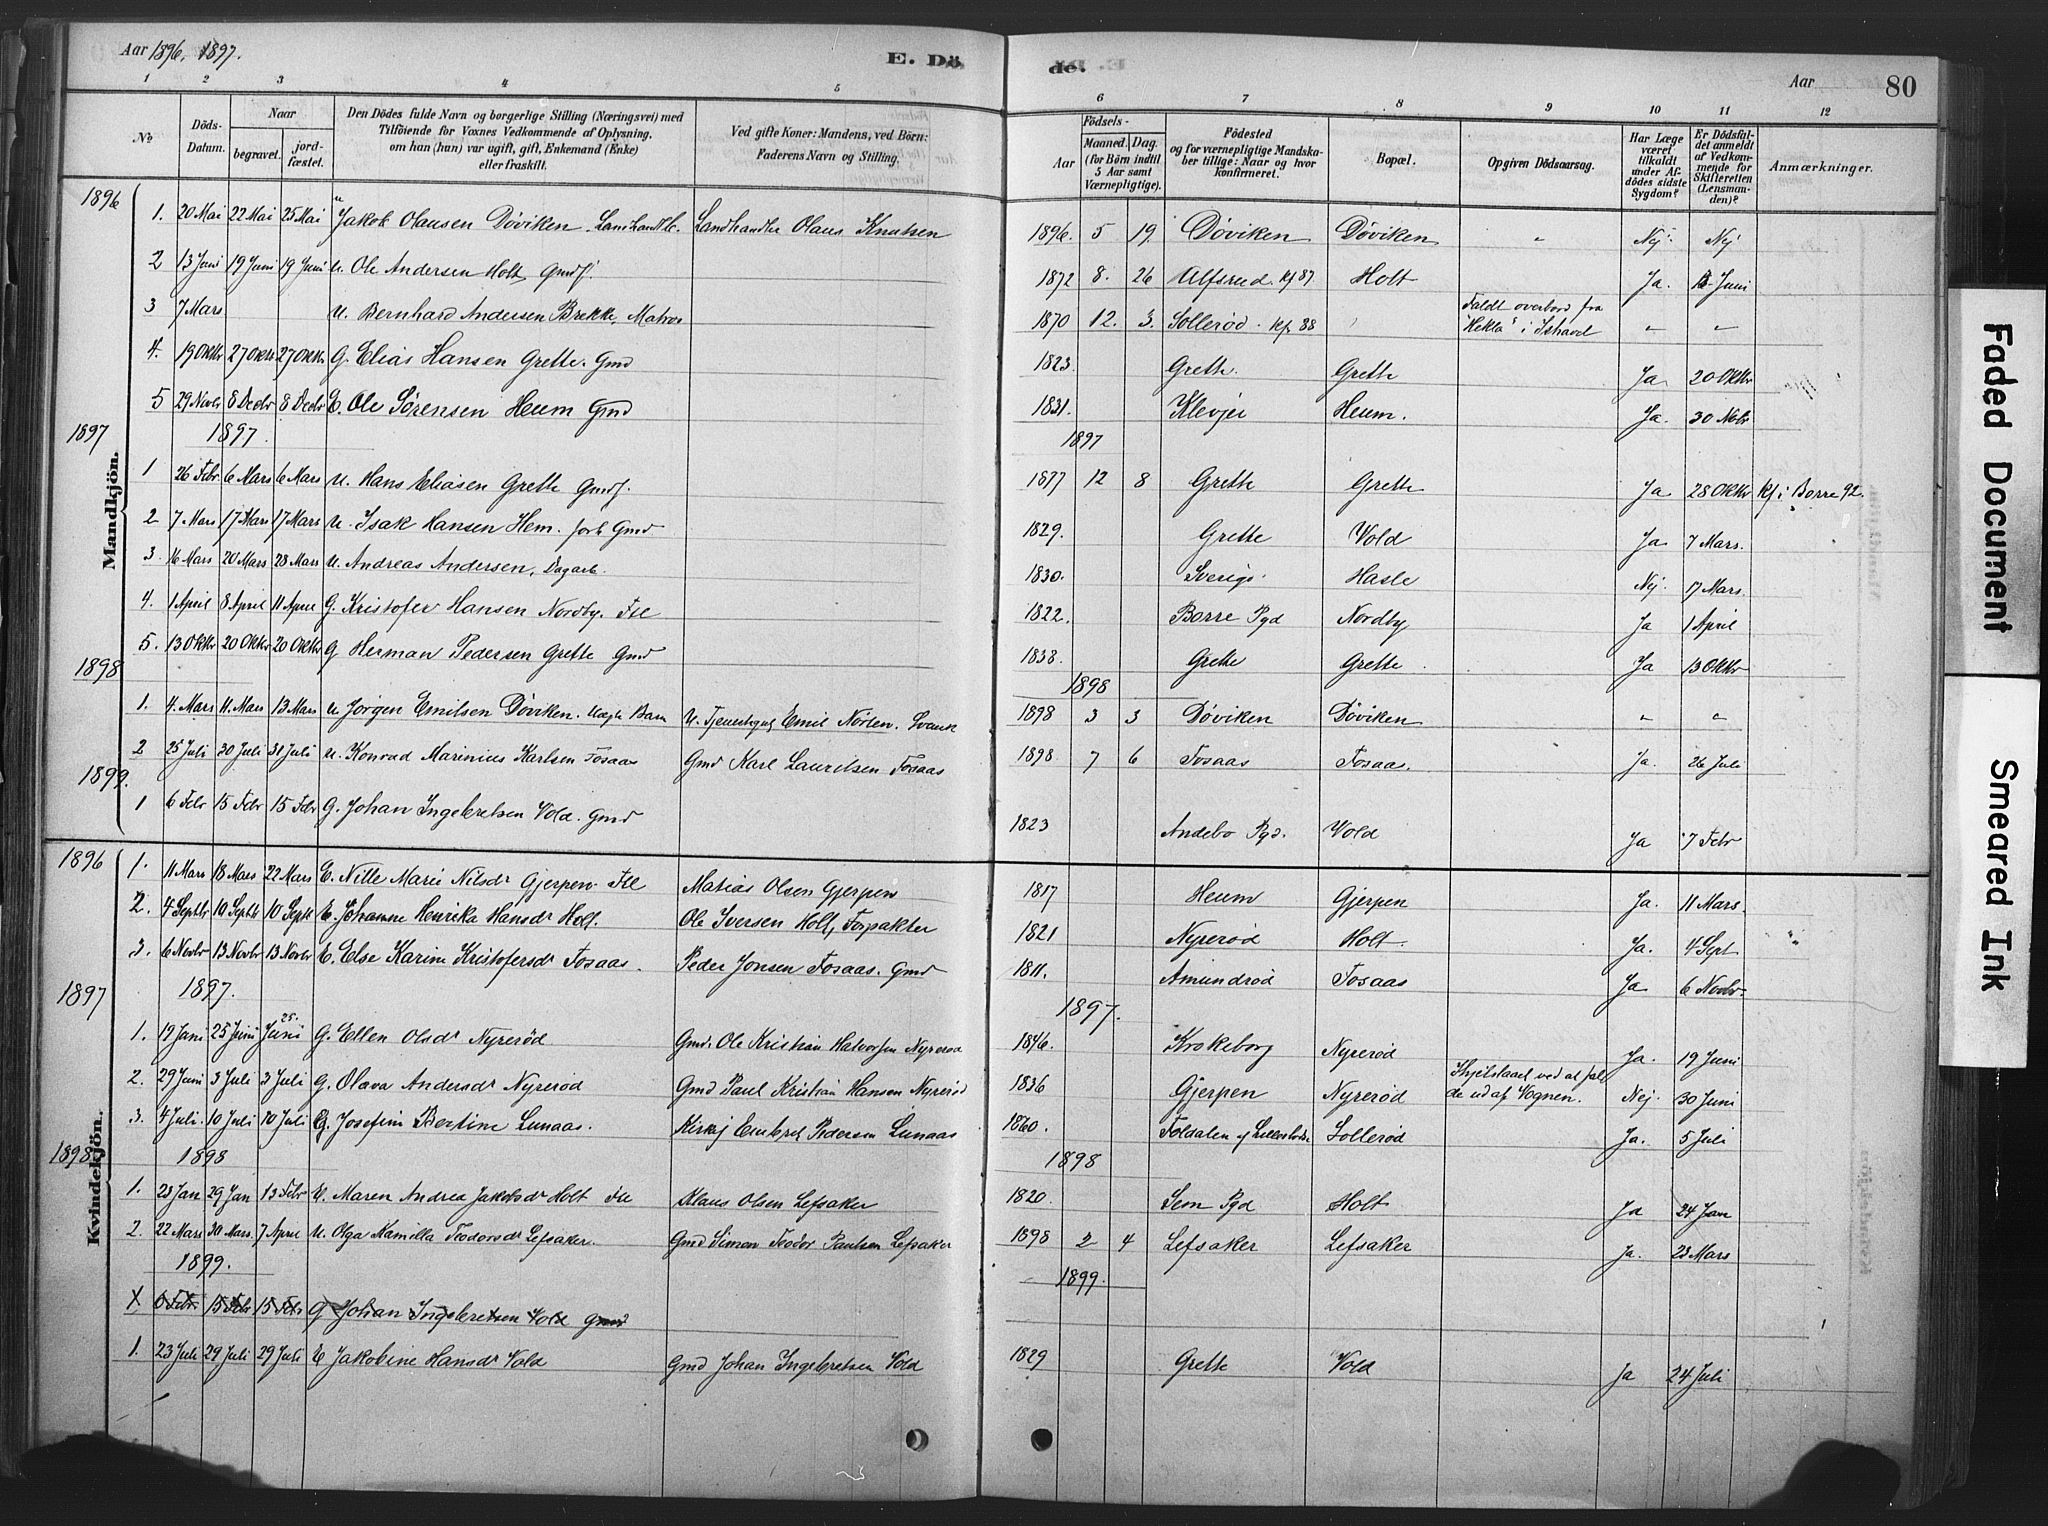 Aar 1896, 1897. E. Dö de. Aar 80
1 2 3 4 5 6 7 8 9 10 11 12
No Döds-Datum. Naar begravet. jordfæstet. Den Dödes fulde Navn og borgerlige Stilling (Næringsvei) med Tilföiende for Voxnes Vedkommende af Oplysning, om han (hun) var ugift, gift, Enkemand (Enke) eller fraskilt. Ved gifte Koner: Mandens, ved Börn: Faderens Navn og Stilling. Födsels- Aar Maaned. Dag. (for Börn indtil 5 Aar samt Værnepligtige). Födested og for værnepligtige Mandskaber tillige: Naar og hvor konfirmeret. Bopæl. Opgiven Dödsaarsag. Har Læge været tilkaldt under Afdödes sidste Sygdom? Er Dödsfaldet anmeldt af Vedkommende for Skifteretten (Lensmanden)? Anmærkninger.
Mandkjön.
1896
1. 20 Mai 22 Mai 25 Mai u Jakob Olausen Döviken. Landhandler Olaus Knutsen 1896. 5 19. Döviken Döviken " Nej. Nej
2 13 Juni 19 Juni 19 Juni u. Ole Andersen Holt Gmdf. 1872 8. 26 Ulfsrud. kf 87 Holt Ja. Juni
3 7 Mars u. Bernhard Andersen Brekke, Matros 1870 12. 3. Sollerød. kf 88 Faldt overbord fra "Hekla" i Ishavet " "
4. 19 Oktbr 27 Oktbr 27 Oktbr G. Elias Hansen Grette. Gmd 1823. Grette. Grette Ja 20 Oktbr
5 29 Novbr 8 Decbr 8 Decbr E. Ole Sörensen Heum Gmd 1831. Klevjer Heum. Ja. 30 Nobr
1897 1897. 1897
1 26 Febr 6 Mars 6 Mars u. Hans Eliasen Grette Gmdf. 1877 12 8 Grette Grette Ja 28 Oktbr kf i Borre 92.
2 7 Mars 17 Mars 17 Mars u. Isak Hansen Hem. Gmd 1829. Grette Vold Ja 7 Mars.
3. 16 Mars 20 Mars 28 Mars u. Andreas Andersen, Dagarb. 1830. Sverige. Hasle Nej. 17 Mars.
4. 1 April 8 April 11 April G. Kristofer Hansen Nordby. Fll 1822. Borre Pgd Nordby Ja 1 April
5. 13 Oktbr 20 Oktbr 20 Oktbr G Herman Pedersen Grette Gmd 1838. Grette Grette. Ja. 13 Oktbr
1898 1898
1. 4. Mars 11. Mars 13 Mars u Jörgen Emilsen Döviken. Uægte Barn U. Emil Svensk 1898 3 3 Döviken Döviken " "
2 25 Juli 30 Juli 31 Juli u. Konrad Marinius Karlsen Fosaas Gmd Karl Lauritsen Fosaas 1898 7 6 Fosaas Fosaas. Ja. 26 Juli
1899.
1 6 Febr 15 Febr 15 Febr G. Johan Ingebretsen Vold. Gmd 1823 Andebo Pgd. Vold Ja 7 Febr
Kvindekjön.
1896
1. 11 Mars 18 Mars 22 Mars E. Nille Marie Nilsdr Gjerpen. Fll Matias Olsen Gjerpen 1817 Heum Gjerpen Ja. 11 Mars.
2. 4 Septbr 10 Septbr 10 Septbr E. Johanne Henrika Hansdr Holt. Ole Iversen Holt, Forpakter 1821 Nyrerød Holt. Ja. 4 Sept
3. 6 Novbr 13 Novbr 13 Novbr E. Else Karine Kristofersdr Fosaas. Peder Jonsen Fosaas. Gmd 1811. Amundrød Fosaas Ja 6 Novbr.
1897 1897. 1897.
1. 19 Juni 25 Juni 25. Juni G. Ellen Olsdr Nyrerød Gmd. Ole Kristian Halvorsen Nyrerød 1846. Krokeborg Nyrerød Ja. 19 Juni
2. 29 Juni 3 Juli 3 Juli G. Olava Andersdr Nyrerød Gmd Paul Kristian Hansen Nyrerød 1836 Gjerpen Nyrerød ihjelslaaet ved at falde ud af Vognen. Nej. 30 Juni
3. 4 Juli. 10 Juli 10 Juli G. Josefine Bertine Lunaas. Embret Pedersen Lunaas 1860. Foldalen Sollerød Ja. 5 Juli
1898 1898 1898
1. 23 Jan 29 Jan 13 Febr E. Maren Andrea Jakobsdr Holt Fll Klaus Olsen Lefsaker 1820. Sem Pgd Holt Ja 24 Jan
2. 22 Mars 30 Mars. 7 April u. Olga Kamilla Teodorsdr Lefsaker. Gmd Simon Teodor Paulsen Lefsaker 1898 2 4 Lefsaker Lefsaker Ja. 23 Mars
1899. 1899.
1 6 Febr. 15 Febr 15 Febr G Johan Ingebretsen Vold Gmd
1. 23 Juli 29 Juli 29 Juli E Jakobine Hansdr Vold Gmd Johan Ingebretsen Vold 1829 Grette Vold Ja 24 Juli
Faded Document
Smeared Ink